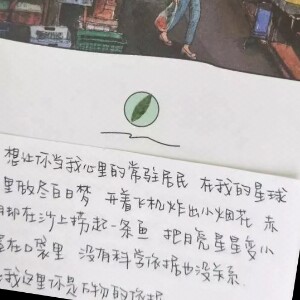 想让你当我心里的常驻居民 在我的星球
里放冬日白梦 开着飞机炸出小烟花 赤
脚在沙上捞起一条鱼 把月亮星星变小
在口袋里 没有科学依据也没关系
我这里你是万物的依据